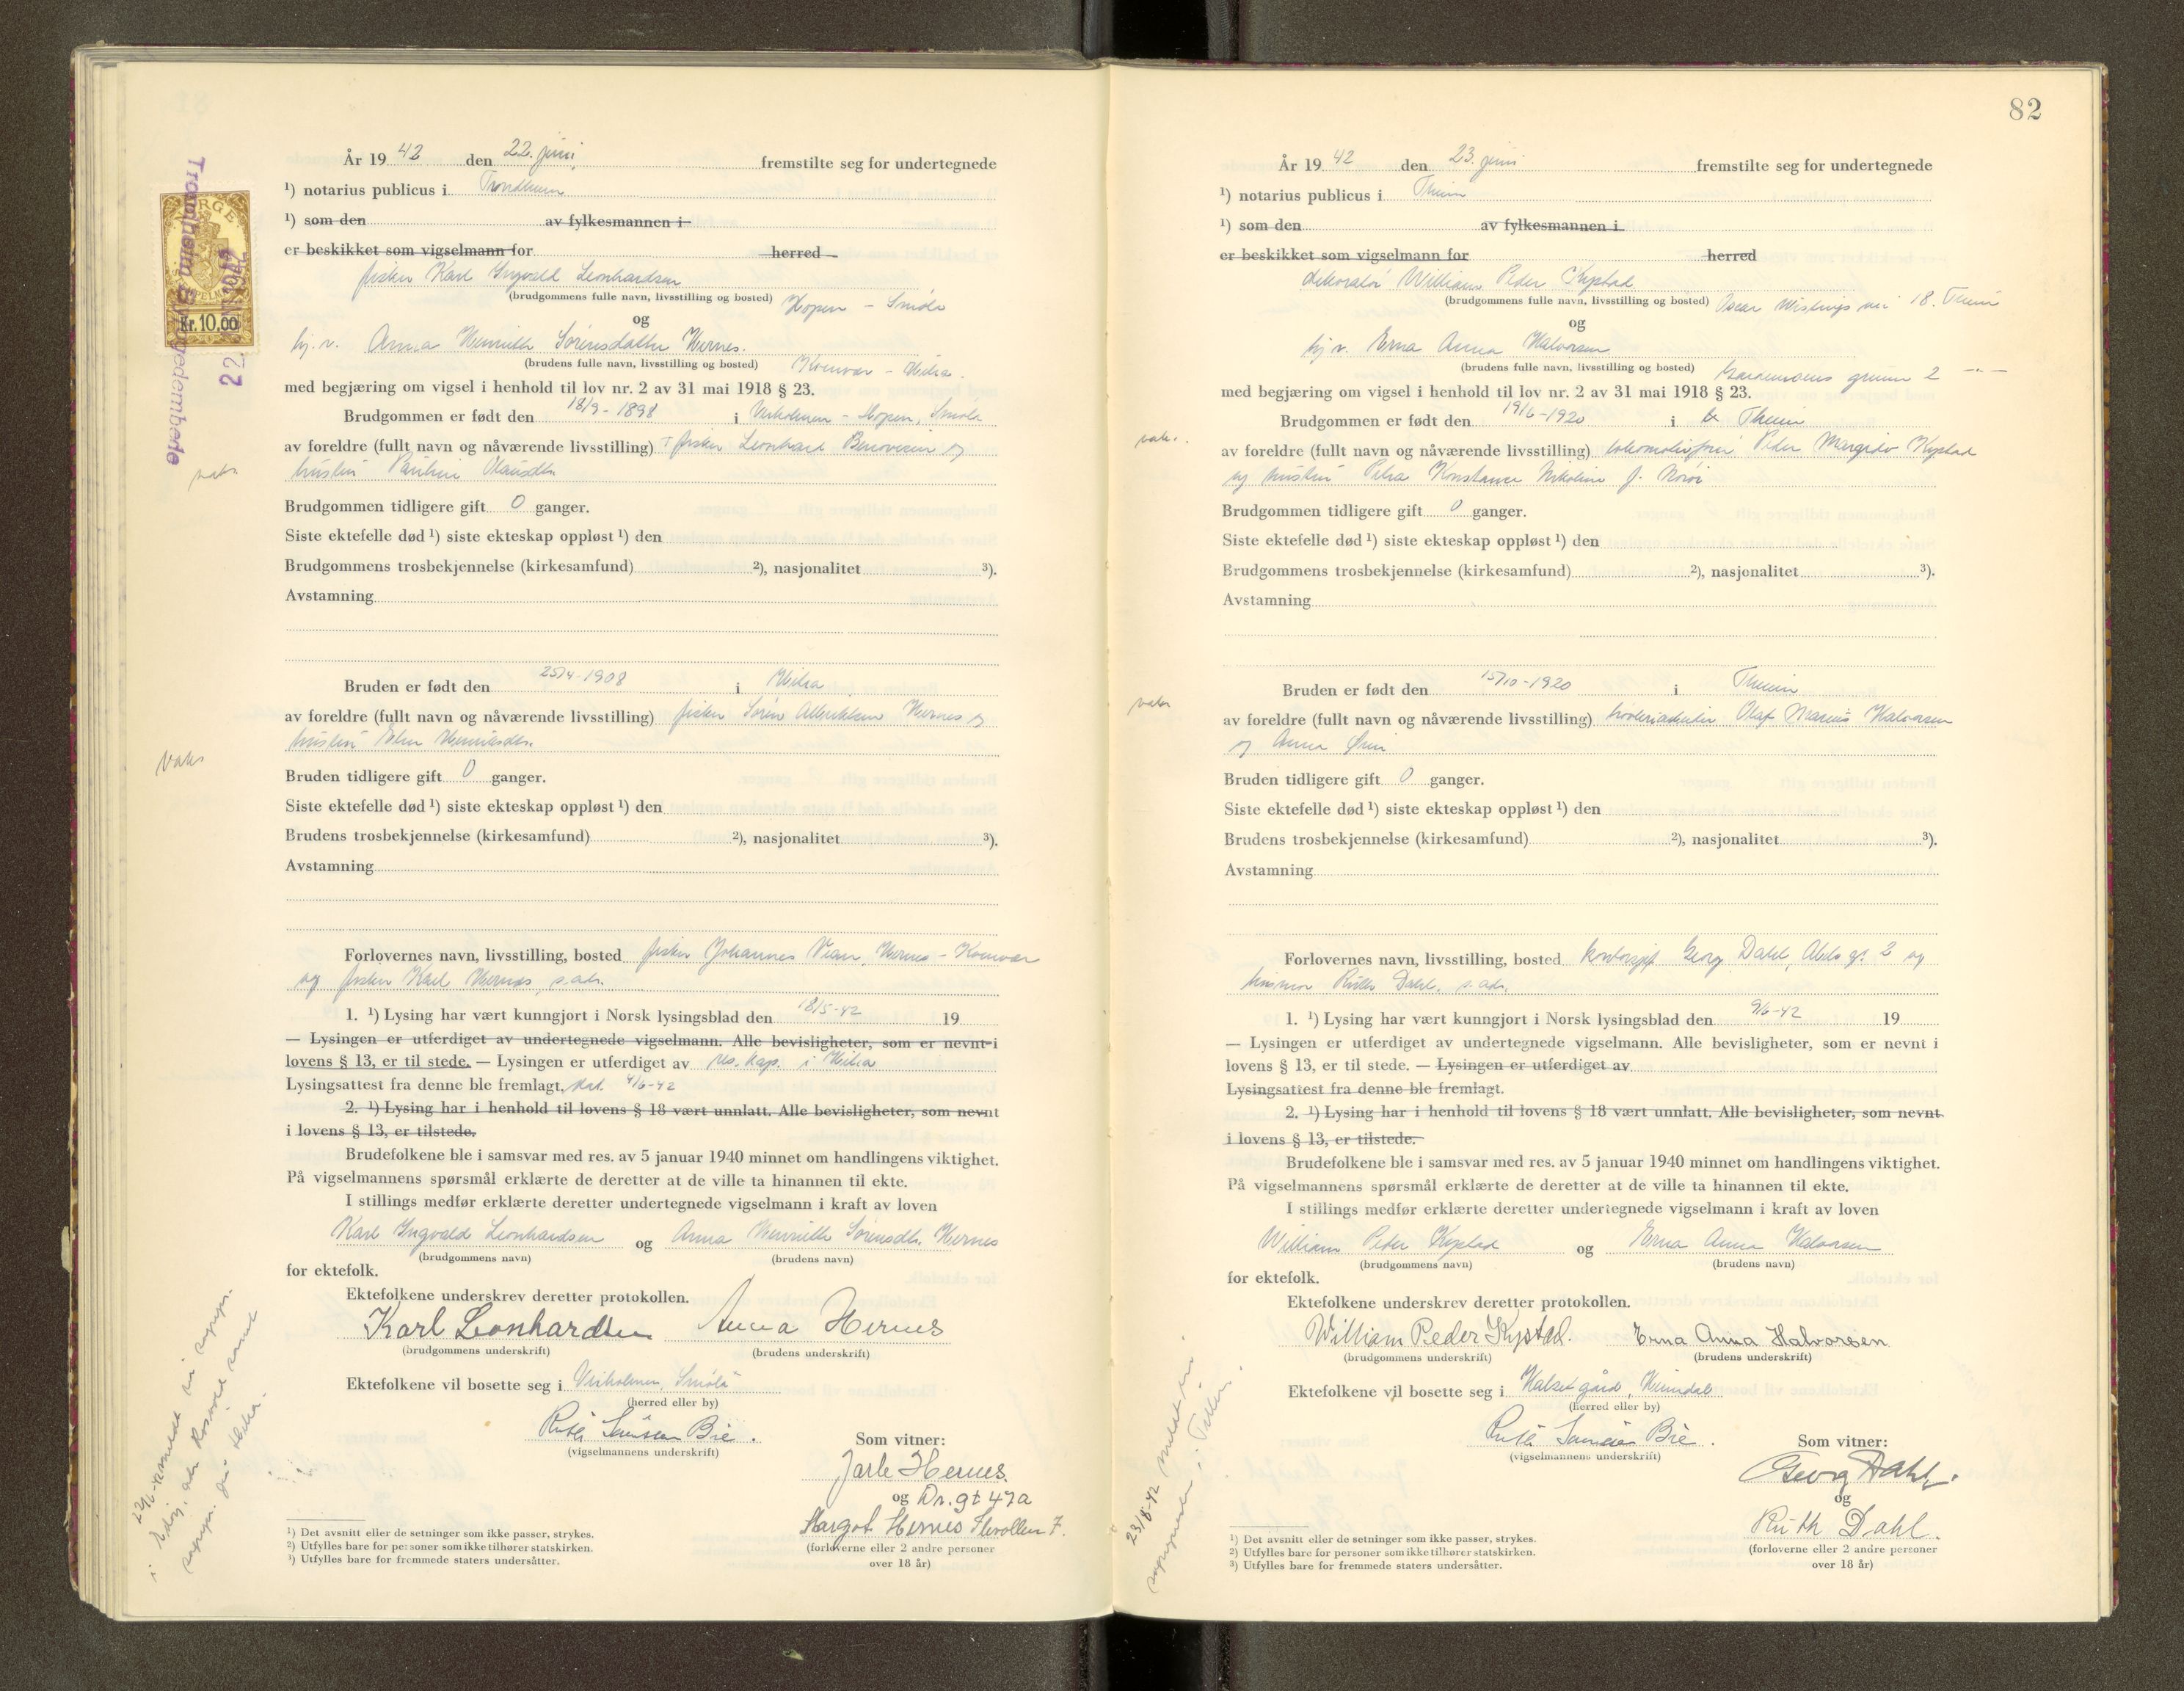 År 19 42 den 22. juni fremstilte seg for undertegnede
¹) notarius publicus i Trondheim
¹) som den av fylkesmannen i
er beskikket som vigselmann for herred
fisker Karl Ingvald Leonhardsen
(brudgommens fulle navn, livsstilling og bosted) Hopen - Smøla
og
hj. v. Anna Henrikke Sørensdatter Hernes.
(brudens fulle navn, livsstilling og bosted) - Hitra.
med begjæring om vigsel i henhold til lov nr. 2 av 31 mai 1918 § 23.
Brudgommen er født den 18/9 - 1898 i - Hopen, Smøla
av foreldre (fullt navn og nåværende livsstilling) fisker Leonhard og
hustru Pauline Olausdtr.
Brudgommen tidligere gift 0 ganger.
Siste ektefelle død ¹) siste ekteskap oppløst ¹) den
Brudgommens trosbekjennelse (kirkesamfund) ²), nasjonalitet ³).
Avstamning
Bruden er født den 25/4 - 1908 i Hitra
av foreldre (fullt navn og nåværende livsstilling) fisker Søren Hernes og
hustru
Bruden tidligere gift 0 ganger.
Siste ektefelle død ¹) siste ekteskap oppløst ¹) den
Brudens trosbekjennelse (kirkesamfund) ²), nasjonalitet ³).
Avstamning
Forlovernes navn, livsstilling, bosted fisker Johannes Hernes -
og fisker Karl Hernes, s. adr.
1. ¹) Lysing har vært kunngjort i Norsk lysingsblad den 18/5-42 19
— Lysingen er utferdiget av undertegnede vigselmann. Alle bevisligheter, som er nevnt i
lovens § 13, er til stede. — Lysingen er utferdiget av res. kap. i Hitra
Lysingsattest fra denne ble fremlagt, dat. 4/6-42
2. ¹) Lysing har i henhold til lovens § 18 vært unnlatt. Alle bevisligheter, som nevnt
i lovens § 13, er tilstede.
Brudefolkene ble i samsvar med res. av 5 januar 1940 minnet om handlingens viktighet.
På vigselmannens spørsmål erklærte de deretter at de ville ta hinannen til ekte.
I stillings medfør erklærte deretter undertegnede vigselmann i kraft av loven
Karl Ingvald Leonhardsen og Anna Henrikke Sørensdtr. Hernes
(brudgommens navn) (brudens navn)
for ektefolk.
Ektefolkene underskrev deretter protokollen.
Karl Leonhardsen Anna Hernes
(brudgommens underskrift) (brudens underskrift)
Ektefolkene vil bosette seg i Smøla
(herred eller by)
Ruth Bie.
(vigselmannens underskrift)
Som vitner:
Jarle Hernes.
og Dr. gt 47a
Margot Hernes
(forloverne eller 2 andre personer
over 18 år)
¹) Det avsnitt eller de setninger som ikke passer, strykes.
²) Utfylles bare for personer som ikke tilhører statskirken.
³) Utfylles bare for fremmede staters undersåtter.
NORGE
Kr. 10.00
Trondheim Byfogdembede
vaks.
vaks
82
År 19 42 den 23. juni fremstilte seg for undertegnede
¹) notarius publicus i Theim
¹) som den av fylkesmannen i
er beskikket som vigselmann for herred
dekoratør William Peder Kystad
(brudgommens fulle navn, livsstilling og bosted) Oscar Wistings vei 18. Theim
og
hj. v. Erna Anna Halvorsen
(brudens fulle navn, livsstilling og bosted) 2 -"-
med begjæring om vigsel i henhold til lov nr. 2 av 31 mai 1918 § 23.
Brudgommen er født den 19/6 - 1920 i Theim
av foreldre (fullt navn og nåværende livsstilling) lokomotivfører Peder Kystad
og hustru Petra Konstance Nikoline f.
Brudgommen tidligere gift 0 ganger.
Siste ektefelle død ¹) siste ekteskap oppløst ¹) den
Brudgommens trosbekjennelse (kirkesamfund) ²), nasjonalitet ³).
Avstamning
Bruden er født den 15/10 - 1920 i Theim
av foreldre (fullt navn og nåværende livsstilling) Olaf Marius Halvorsen
og Anna
Bruden tidligere gift 0 ganger.
Siste ektefelle død ¹) siste ekteskap oppløst ¹) den
Brudens trosbekjennelse (kirkesamfund) ²), nasjonalitet ³).
Avstamning
Forlovernes navn, livsstilling, bosted kontorsjef Georg Dahl, 2 og
husmor Ruth Dahl, s. adr.
1. ¹) Lysing har vært kunngjort i Norsk lysingsblad den 9/6-42 19
— Lysingen er utferdiget av undertegnede vigselmann. Alle bevisligheter, som er nevnt i
lovens § 13, er til stede. — Lysingen er utferdiget av
Lysingsattest fra denne ble fremlagt.
2. ¹) Lysing har i henhold til lovens § 18 vært unnlatt. Alle bevisligheter, som nevnt
i lovens § 13, er tilstede.
Brudefolkene ble i samsvar med res. av 5 januar 1940 minnet om handlingens viktighet.
På vigselmannens spørsmål erklærte de deretter at de ville ta hinannen til ekte.
I stillings medfør erklærte deretter undertegnede vigselmann i kraft av loven
William Peder Kystad og Erna Anna Halvorsen
(brudgommens navn) (brudens navn)
for ektefolk.
Ektefolkene underskrev deretter protokollen.
William Peder Kystad. Erna Anna Halvorsen
(brudgommens underskrift) (brudens underskrift)
Ektefolkene vil bosette seg i Halset gård, Heimdal
(herred eller by)
Ruth Bie.
(vigselmannens underskrift)
Som vitner:
Georg Dahl.
og
Ruth Dahl.
(forloverne eller 2 andre personer
over 18 år)
¹) Det avsnitt eller de setninger som ikke passer, strykes.
²) Utfylles bare for personer som ikke tilhører statskirken.
³) Utfylles bare for fremmede staters undersåtter.
vaks.
vaks